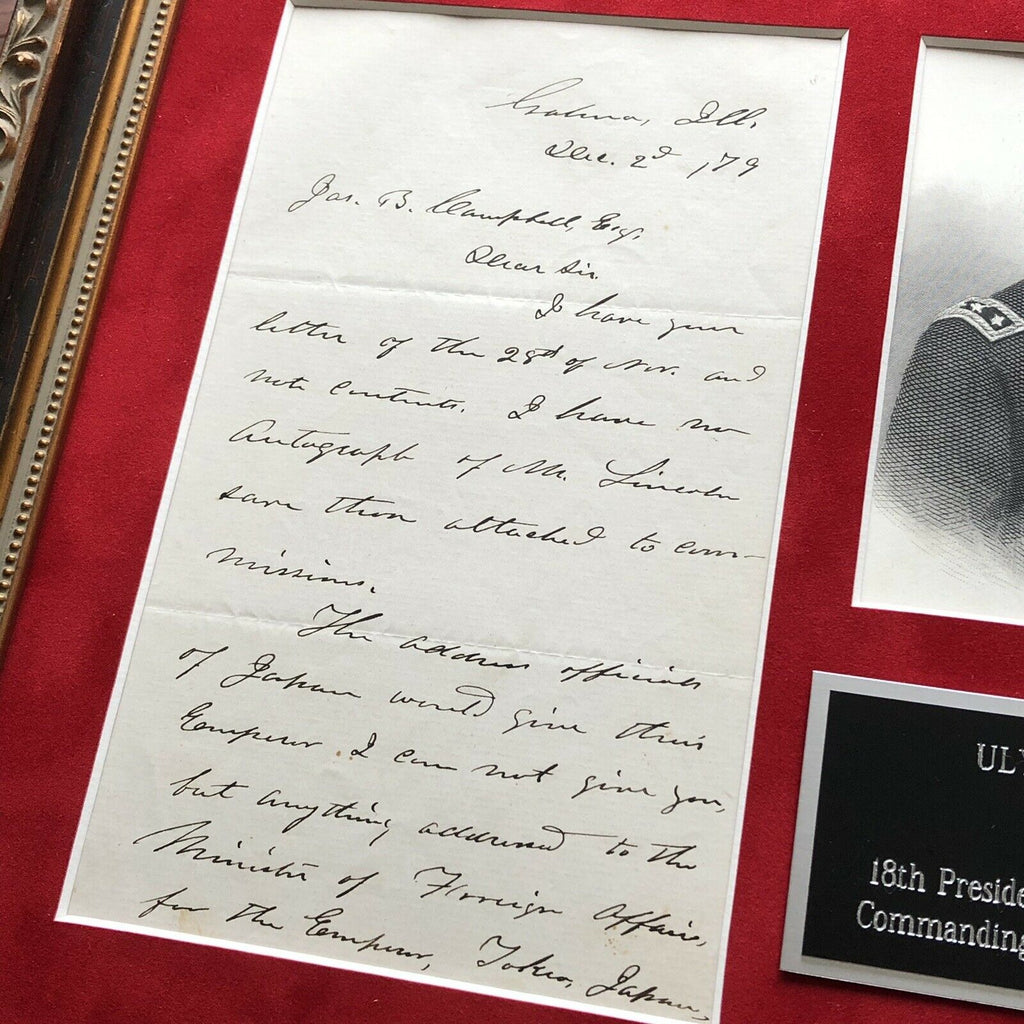 Galena, Ill.
Dec. 2d, '79
Jas. B. Campbell, Esq.
Dear Sir.
I have your
letter of the 28th of Nov. and
note contents. I have no
Autograph of Mr. Lincoln
save those attached to com-
missions.
The address officials
of Japan would give their
Emperor I can not give you,
but anything addressed to the
Minister of Foreign Affairs,
for the Emperor, Tokio, Japan,
UL
18th Preside
Commanding